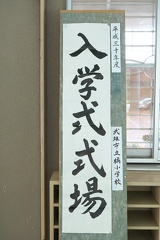 平成三十年度
入学式式場
武雄市立橘小学校